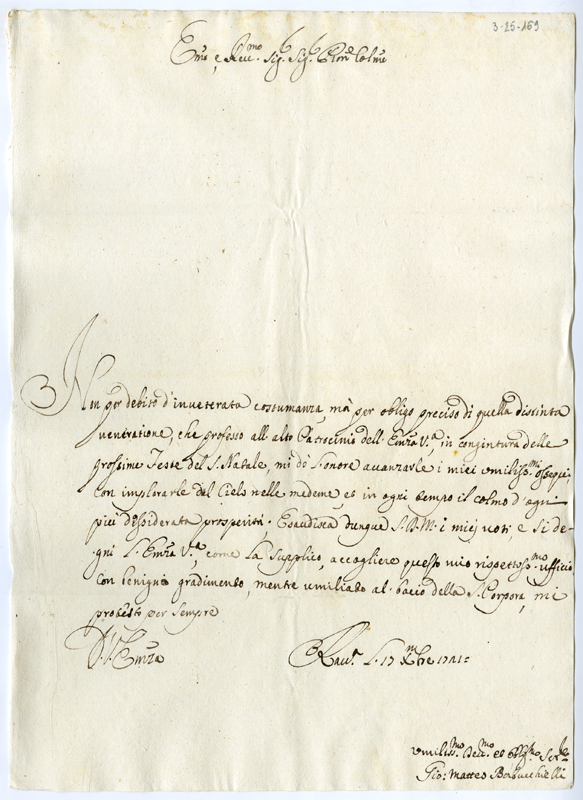 3-25-169
Emo e Reu.mo Sig.r Sig.r Pron Colmo
Non per debito d'inveterata costumanza, mà per obligo preciso di quella distinta
venerazione, che professo all'alto Patrocinio dell'Emza V.a in congintura delle
prossime Feste del S. Natale, mi dò l'onore avanzarle i miei umiliss.mi ossequi,
con implorarle dal Cielo nelle medeme, et in ogni tempo il colmo d'ogni
più desiderata prosperità. Esaudisca dunque S.D.M. i miej voti, e si de-
gni l'Emza V.a, come La Supplico, accogliere questo mio rispettos.mo ufficio
con benigno gradimento, mentre umiliato al bacio della S. Porpora, mi
protesto per sempre
D. V. Emza
L. 17 Xbre
umiliss.mo Deu.mo et Obblig.mo Ser.re
Gio: Matteo